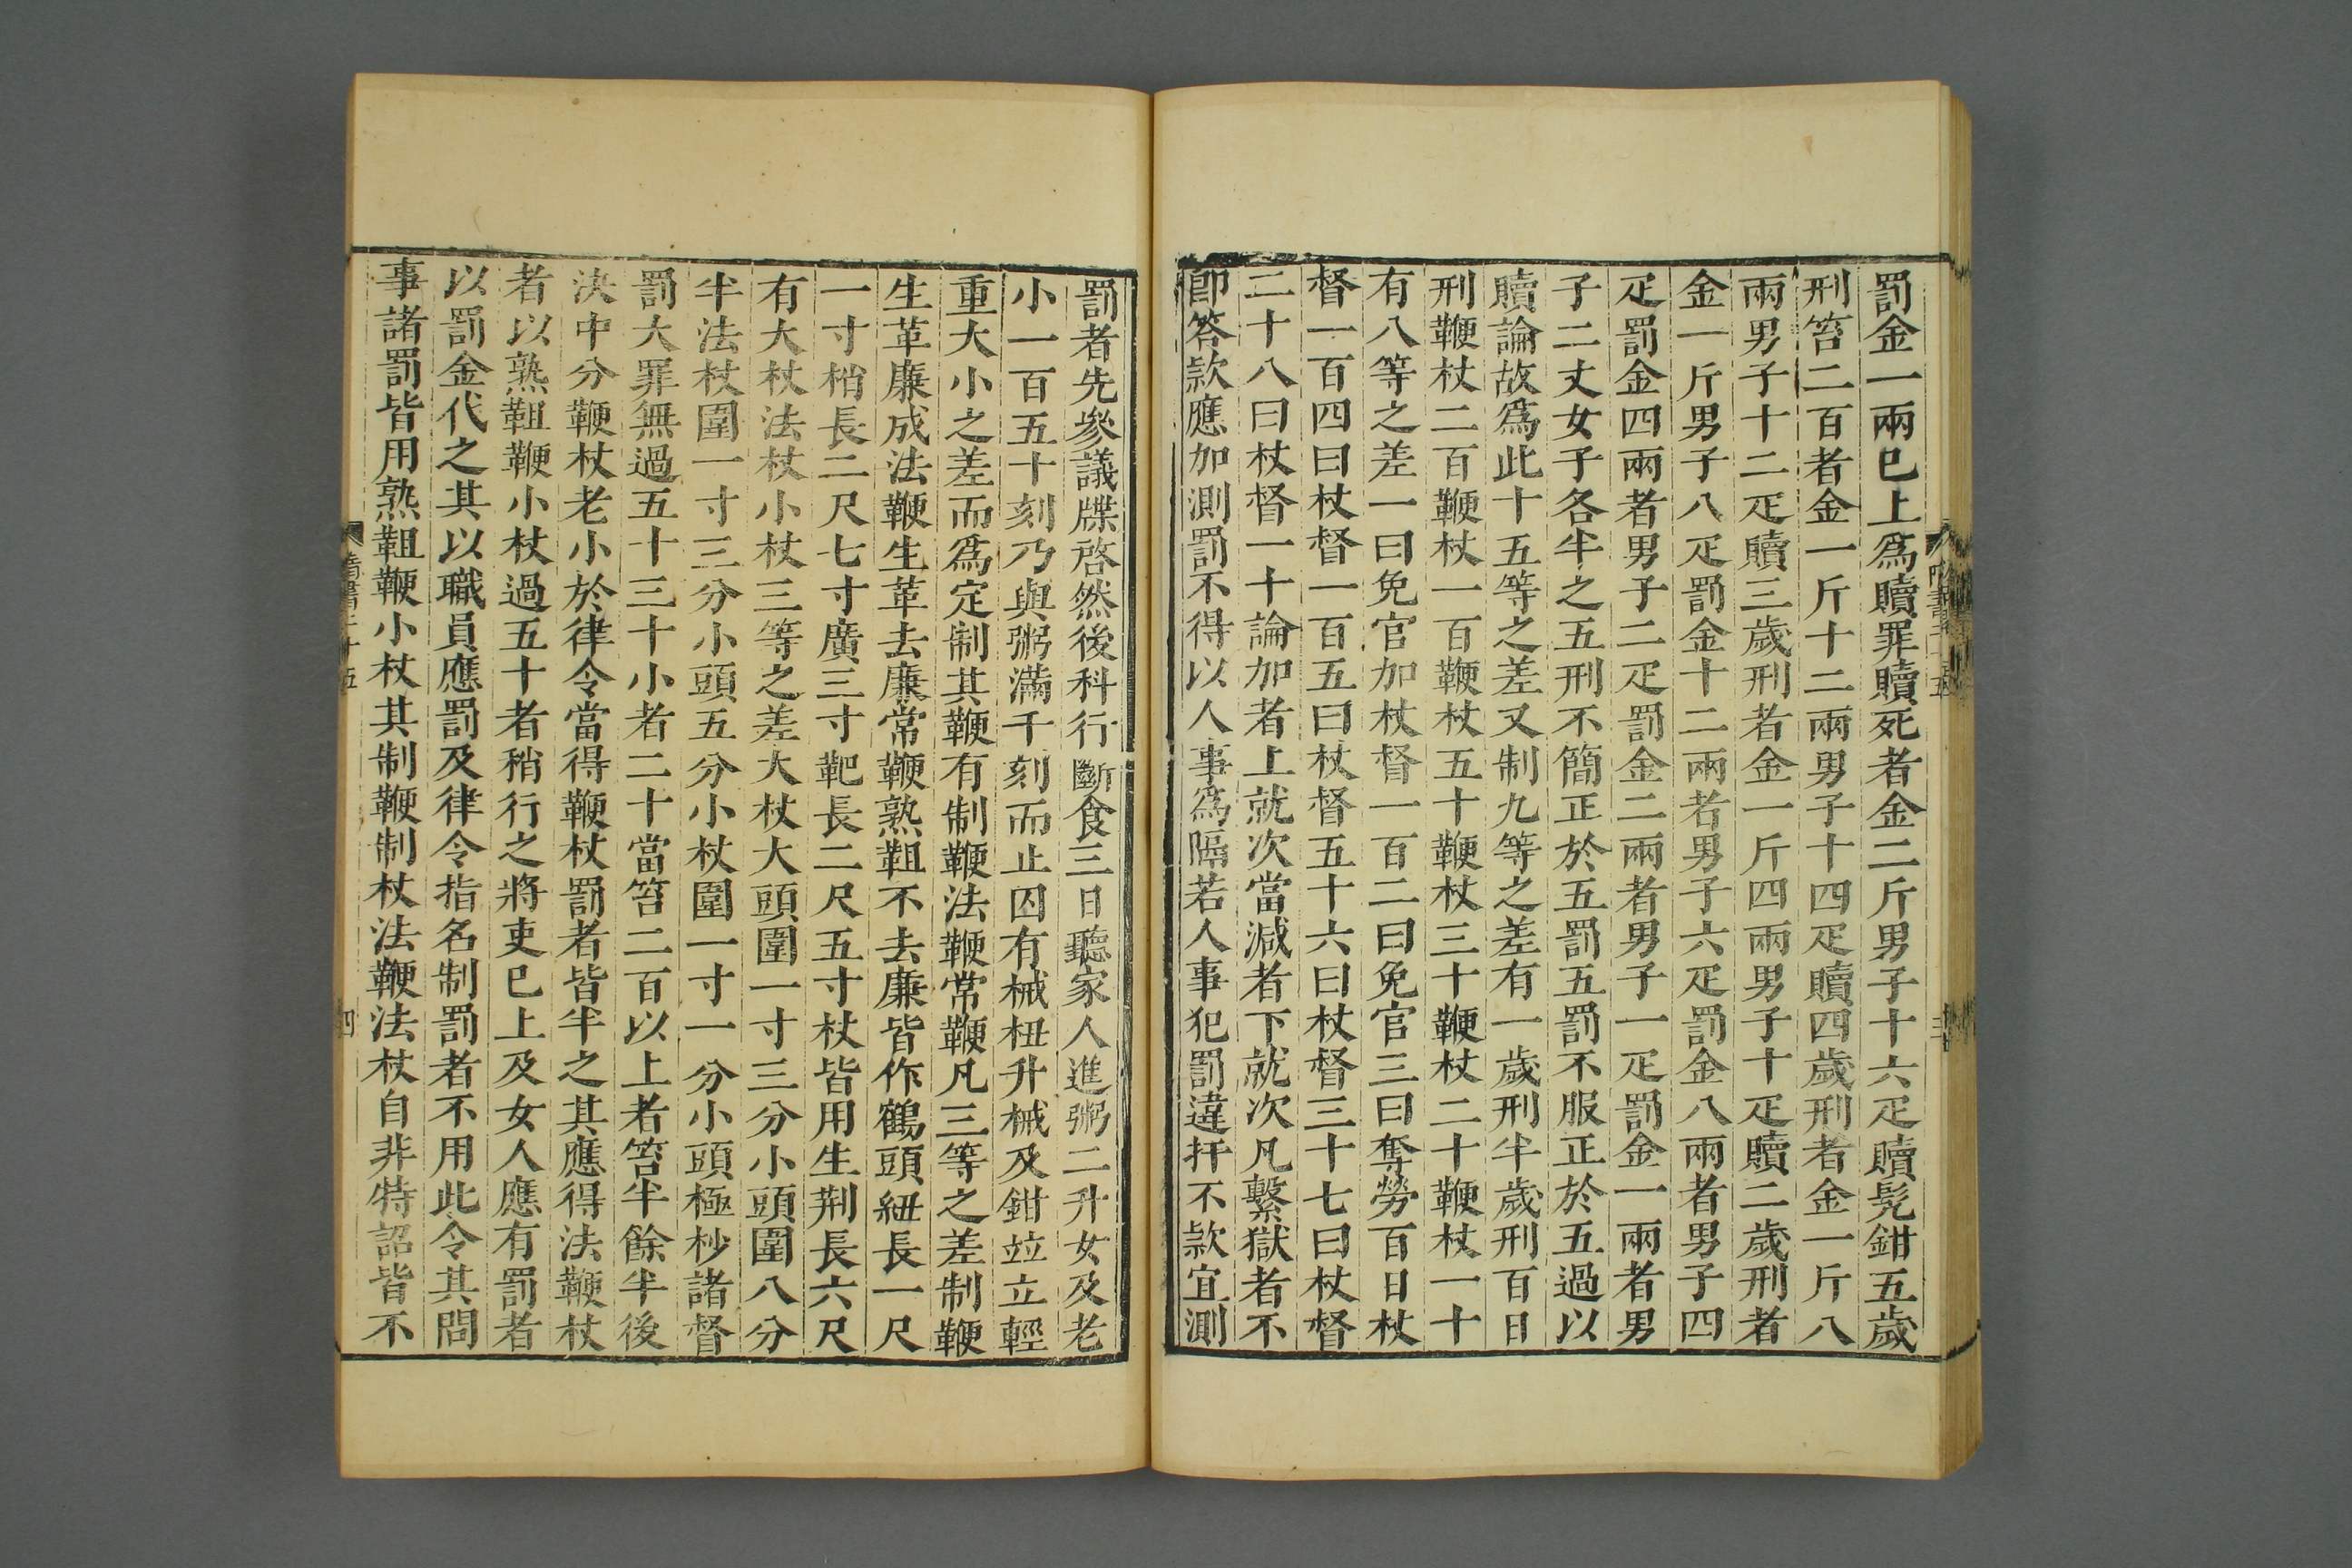 罰金一兩已上爲贖罪贖死者金二斤男子十六疋贖髡鉗五歲
刑笞二百者金一斤十二兩男子十四疋贖四歲刑者金一斤八
兩男子十二疋贖三歲刑者金一斤四兩男子十疋贖二歲刑者
金一斤男子八疋罰金十二兩者男子六疋罰金八兩者男子四
疋罰金四兩者男子二疋罰金二兩者男子一疋罰金一兩者男
子二丈女子各半之五刑不簡正於五罰五罰不服正於五過以
贖論故爲此十五等之差又制九等之差有一歲刑半歲刑百日
刑鞭杖二百鞭杖一百鞭杖五十鞭杖三十鞭杖二十鞭杖一十
有八等之差一曰免官加杖督一百二曰免官三曰奪勞百日杖
督一百四曰杖督一百五曰杖督五十六曰杖督三十七曰杖督
二十八曰杖督一十論加者上就次當減者下就次凡繫獄者不
即答款應加測罰不得以人事爲隔若人事犯罰違扞不款宜測
罰者先參議牒啓然後科行斷食三日聽家人進粥二升女及老
小一百五十刻乃與粥滿千刻而止囚有械杻升械及鉗竝立輕
重大小之差而爲定制其鞭有制鞭法鞭常鞭凡三等之差制鞭
生革廉成法鞭生革去廉常鞭熟靼不去廉皆作鶴頭紐長一尺
一寸梢長二尺七寸廣三寸靶長二尺五寸杖皆用生荆長六尺
有大杖法杖小杖三等之差大杖大頭圍一寸三分小頭圍八分
半法杖圍一寸三分小頭五分小杖圍一寸一分小頭極杪諸督
罰大罪無過五十三十小者二十當笞二百以上者笞半餘半後
決中分鞭杖老小於律令當得鞭杖罰者皆半之其應得法鞭杖
者以熟靼鞭小杖過五十者稍行之將吏已上及女人應有罰者
以罰金代之其以職員應罰及律令指名制罰者不用此令其問
事諸罰皆用熟靼鞭小杖其制鞭制杖法鞭法杖自非特詔皆不
隋書二十五
四